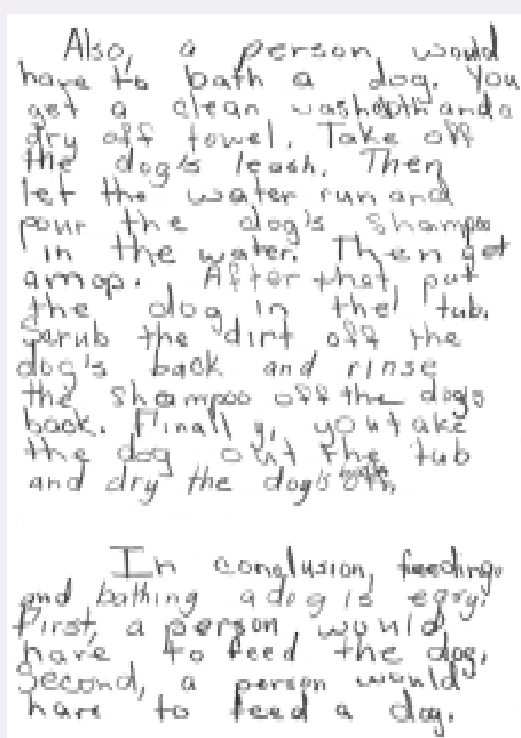 Also, a person would
have to bath a dog. You
get a clean washcloth and a
dry off towel. Take off
the dog's leash. Then
let the water run and
pour the dog's shampoo
in the water. Then get
a mop. After that, put
the dog in the tub.
Scrub the dirt off the
dog's back and rinse
the shampoo off the dogs
back. Finally, you take
the dog out the tub
and dry the dog's
In conclusion, feeding
and bathing a dog is easy.
First, a person would
have to feed the dog.
Second, a person would
have to feed a dog.